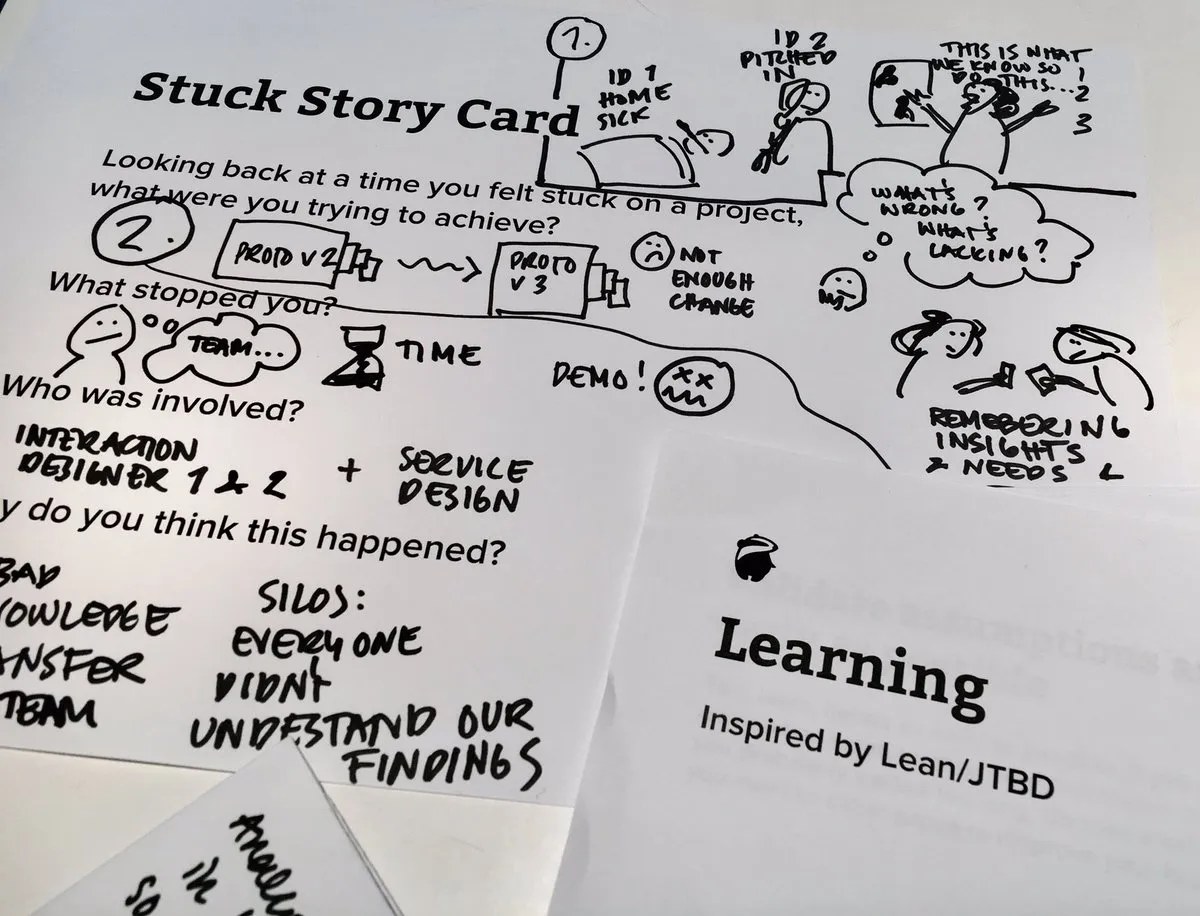 1.
ID 1
HOME
SICK
ID 2
PITCHED
IN
THIS IS WHAT
WE KNOW SO
DO THIS... 1
2
3
Stuck Story Card
Looking back at a time you felt stuck on a project,
what were you trying to achieve?
WHAT'S
WRONG?
WHAT'S
LACKING?
2.
PROTO V2
PROTO
V3
NOT
ENOUGH
CHANGE
What stopped you?
TEAM...
TIME
DEMO!
REMEBERING
INSIGHTS
& NEEDS
Who was involved?
INTERACTION
DESIGNER 1 & 2
+
SERVICE
DESIGN
y do you think this happened?
BAD
NOWLEDGE
ANSFER
TEAM
SILOS:
EVERYONE
DIDN'T
UNDERSTAND OUR
FINDINGS
Learning
Inspired by Lean/JTBD
in
so